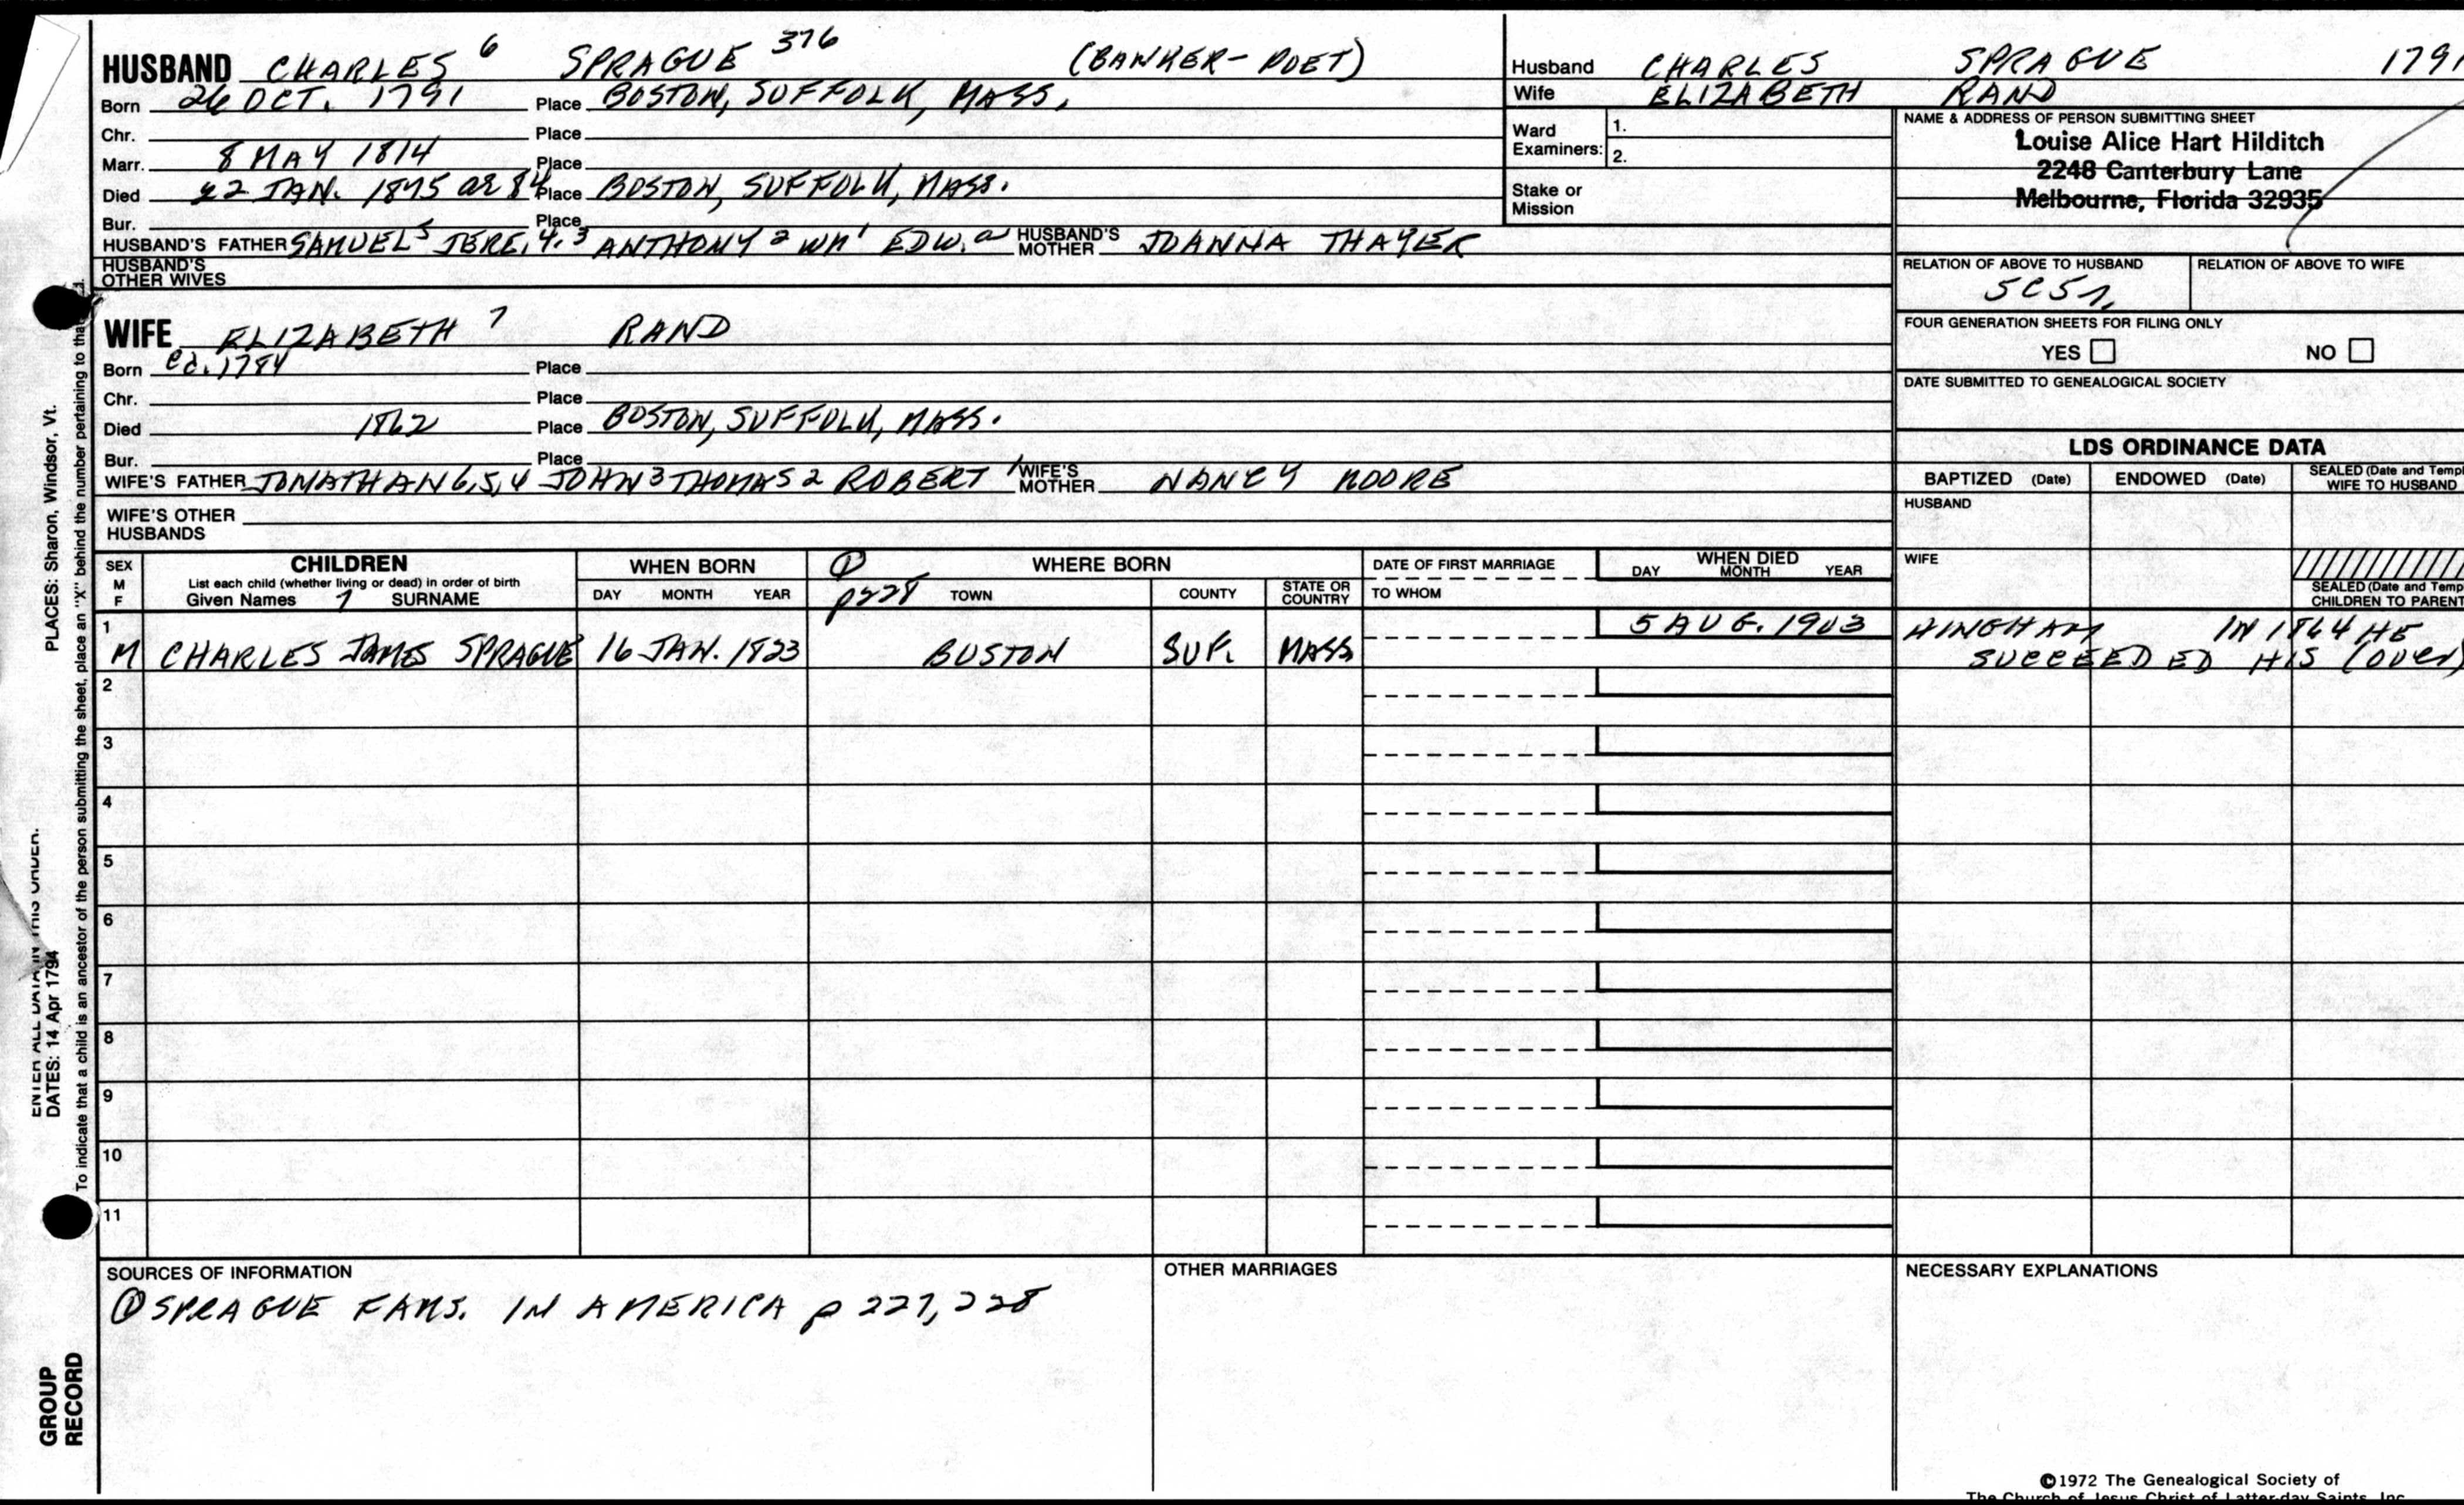 HUSBAND CHARLES 6 SPRAGUE 376 (BANKER-POET)
Born 26 OCT. 1791 Place BOSTON, SUFFOLK, MASS.
Chr. Place
Marr. 8 MAY 1814 Place
Died 22 JAN. 1875 ae 84 Place BOSTON, SUFFOLK, MASS.
Bur. Place
HUSBAND'S FATHER SAMUEL 5 JERE. 4, 3 ANTHONY 2 WM 1 EDW. a HUSBAND'S MOTHER JOANNA THAYER
HUSBAND'S OTHER WIVES
Husband CHARLES SPRAGUE 1791
Wife ELIZABETH RAND
Ward Examiners: 1.
2.
Stake or Mission
NAME & ADDRESS OF PERSON SUBMITTING SHEET
Louise Alice Hart Hilditch
2248 Canterbury Lane
Melbourne, Florida 32935
RELATION OF ABOVE TO HUSBAND RELATION OF ABOVE TO WIFE
5C5r.
FOUR GENERATION SHEETS FOR FILING ONLY
YES NO
DATE SUBMITTED TO GENEALOGICAL SOCIETY
WIFE ELIZABETH 7 RAND
Born ca. 1784 Place
Chr. Place
Died 1862 Place BOSTON, SUFFOLK, MASS.
Bur. Place
WIFE'S FATHER JONATHAN 6, 5, 4 JOHN 3 THOMAS 2 ROBERT 1 WIFE'S MOTHER NANCY MOORE
WIFE'S OTHER HUSBANDS
LDS ORDINANCE DATA
BAPTIZED (Date) ENDOWED (Date) SEALED (Date and Temp
WIFE TO HUSBAND
HUSBAND
WIFE
SEALED (Date and Temp
CHILDREN TO PARENT
SEX M F CHILDREN WHEN BORN ① WHERE BORN DATE OF FIRST MARRIAGE WHEN DIED
List each child (whether living or dead) in order of birth DAY MONTH YEAR
Given Names 7 SURNAME DAY MONTH YEAR p228 TOWN COUNTY STATE OR COUNTRY TO WHOM
1 5 AUG. 1903 HINGHAM IN 1864 HE
M CHARLES JAMES SPRAGUE 16 JAN. 1823 BOSTON SUF. MASS SUCCEEDED HIS (over)
2
3
4
5
6
7
8
9
10
11
SOURCES OF INFORMATION
① SPRAGUE FAMS. IN AMERICA p 227, 228
OTHER MARRIAGES
NECESSARY EXPLANATIONS
©1972 The Genealogical Society of
The Church of Jesus Christ of Latter-day Saints, Inc.
To indicate that a child is an ancestor of the person submitting the sheet, place an "X" behind the number pertaining to that
PLACES: Sharon, Windsor, Vt.
ENTER ALL DATA IN THIS ORDER:
DATES: 14 Apr 1794
GROUP RECORD